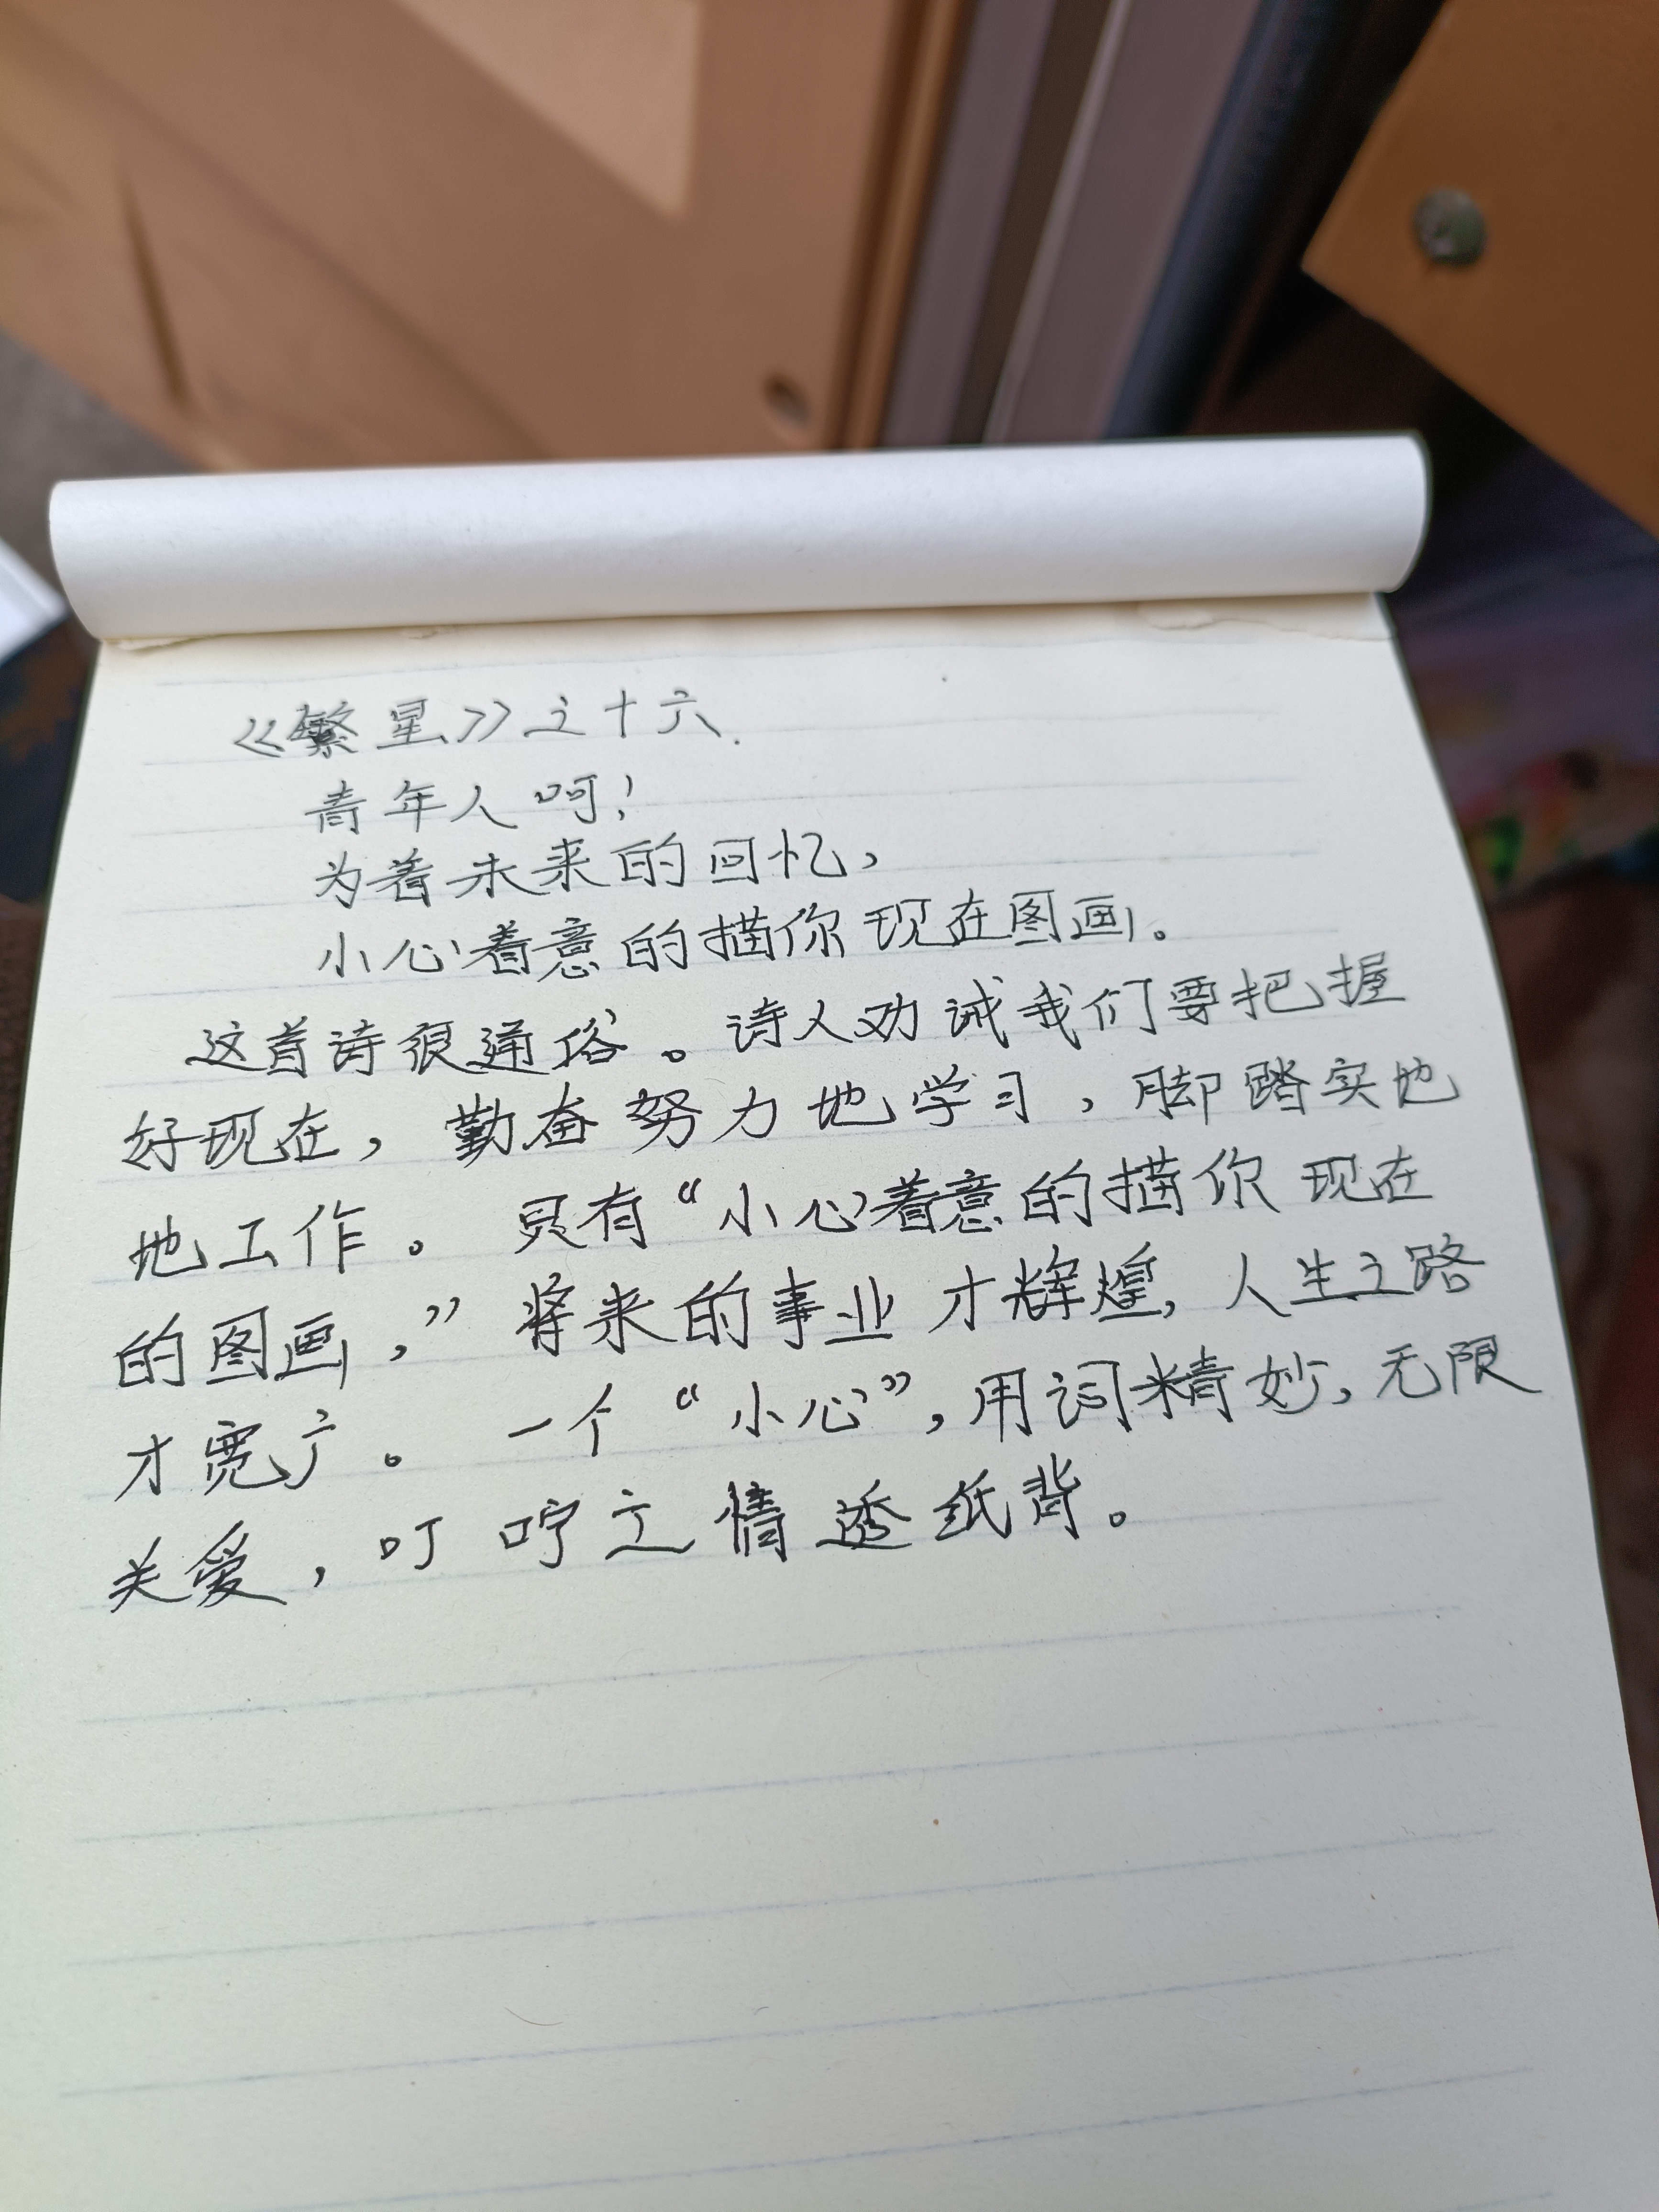 《繁星》之十六.
青年人呵！
为着未来的回忆，
小心着意的描你现在图画。
这首诗很通俗。诗人劝诫我们要把握
好现在，勤奋努力地学习，脚踏实地
地工作。只有“小心着意的描你现在
的图画，”将来的事业才辉煌，人生之路
才宽广。一个“小心”，用词精妙，无限
关爱，叮咛之情透纸背。